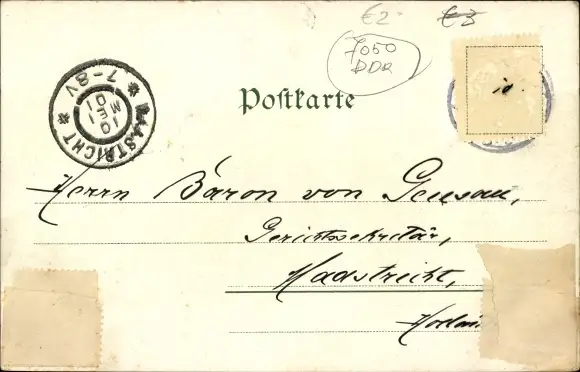 €2 €3
7050
DDR
Postkarte
MAASTRICHT
7-8V
10 MEI 01
Herrn Baron von Geusau,
Gerichtssekretär,
Maastricht,